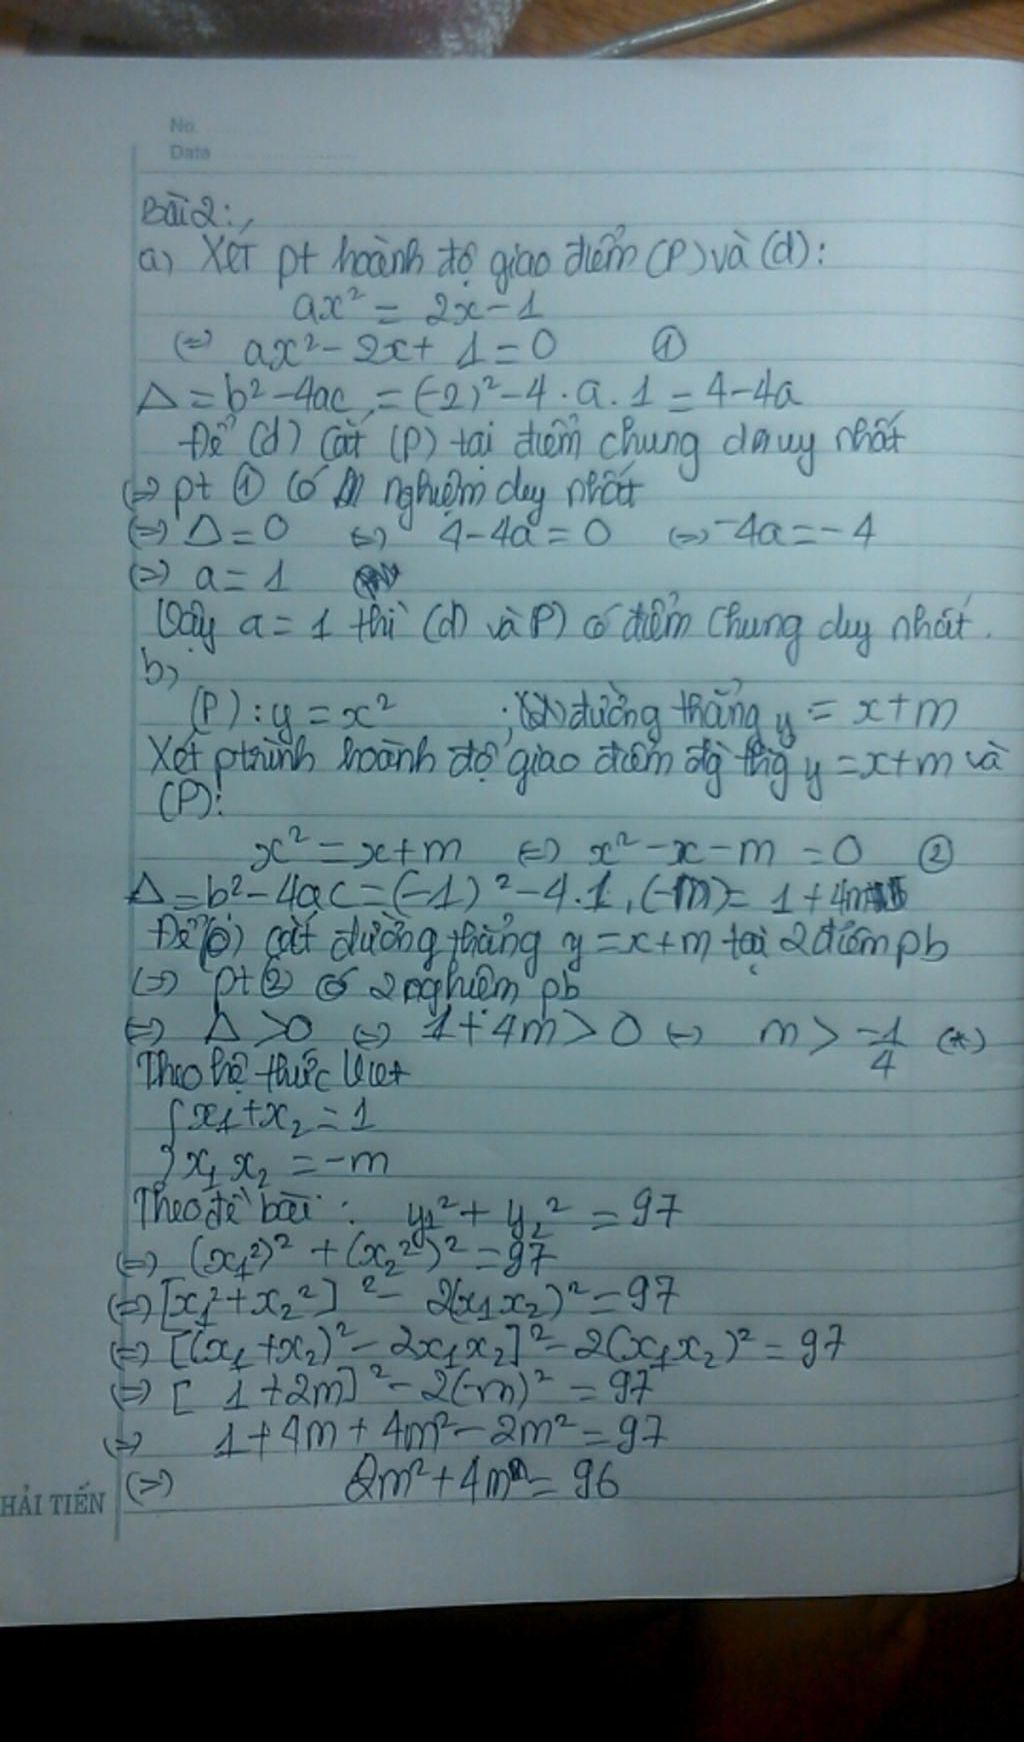 No.
Date
Bài 2:,
a) Xét pt hoành độ giao điểm (P) và (d):
ax² = 2x - 1
(=) ax² - 2x + 1 = 0 ①
Δ = b² - 4ac = (-2)² - 4 . a . 1 = 4 - 4a
Để (d) cắt (P) tại điểm chung duy nhất
(=) pt ① có nghiệm duy nhất
(=) Δ = 0 (=) 4 - 4a = 0 (=) -4a = -4
(=) a = 1
Vậy a = 1 thì (d) và P) có điểm chung duy nhất.
b)
(P) : y = x² ; đường thẳng y = x + m
Xét ptrình hoành độ giao điểm đg thg y = x + m và
(P):
x² = x + m (=) x² - x - m = 0 ②
Δ = b² - 4ac = (-1)² - 4 . 1 . (-m) = 1 + 4m
Để (P) cắt đường thẳng y = x + m tại 2 điểm pb
(=) pt ② có 2 nghiệm pb
(=) Δ > 0 (=) 1 + 4m > 0 (=) m > -1/4 (*)
Theo hệ thức Viet
{ x₁ + x₂ = 1
x₁ x₂ = -m
Theo đề bài : y₁² + y₂² = 97
(=) (x₁²)² + (x₂²)² = 97
(=) [x₁² + x₂²]² - 2(x₁x₂)² = 97
(=) [(x₁ + x₂)² - 2x₁x₂]² - 2(x₁x₂)² = 97
(=) [ 1 + 2m]² - 2(-m)² = 97
(=) 1 + 4m + 4m² - 2m² = 97
(=) 2m² + 4m = 96
HẢI TIẾN